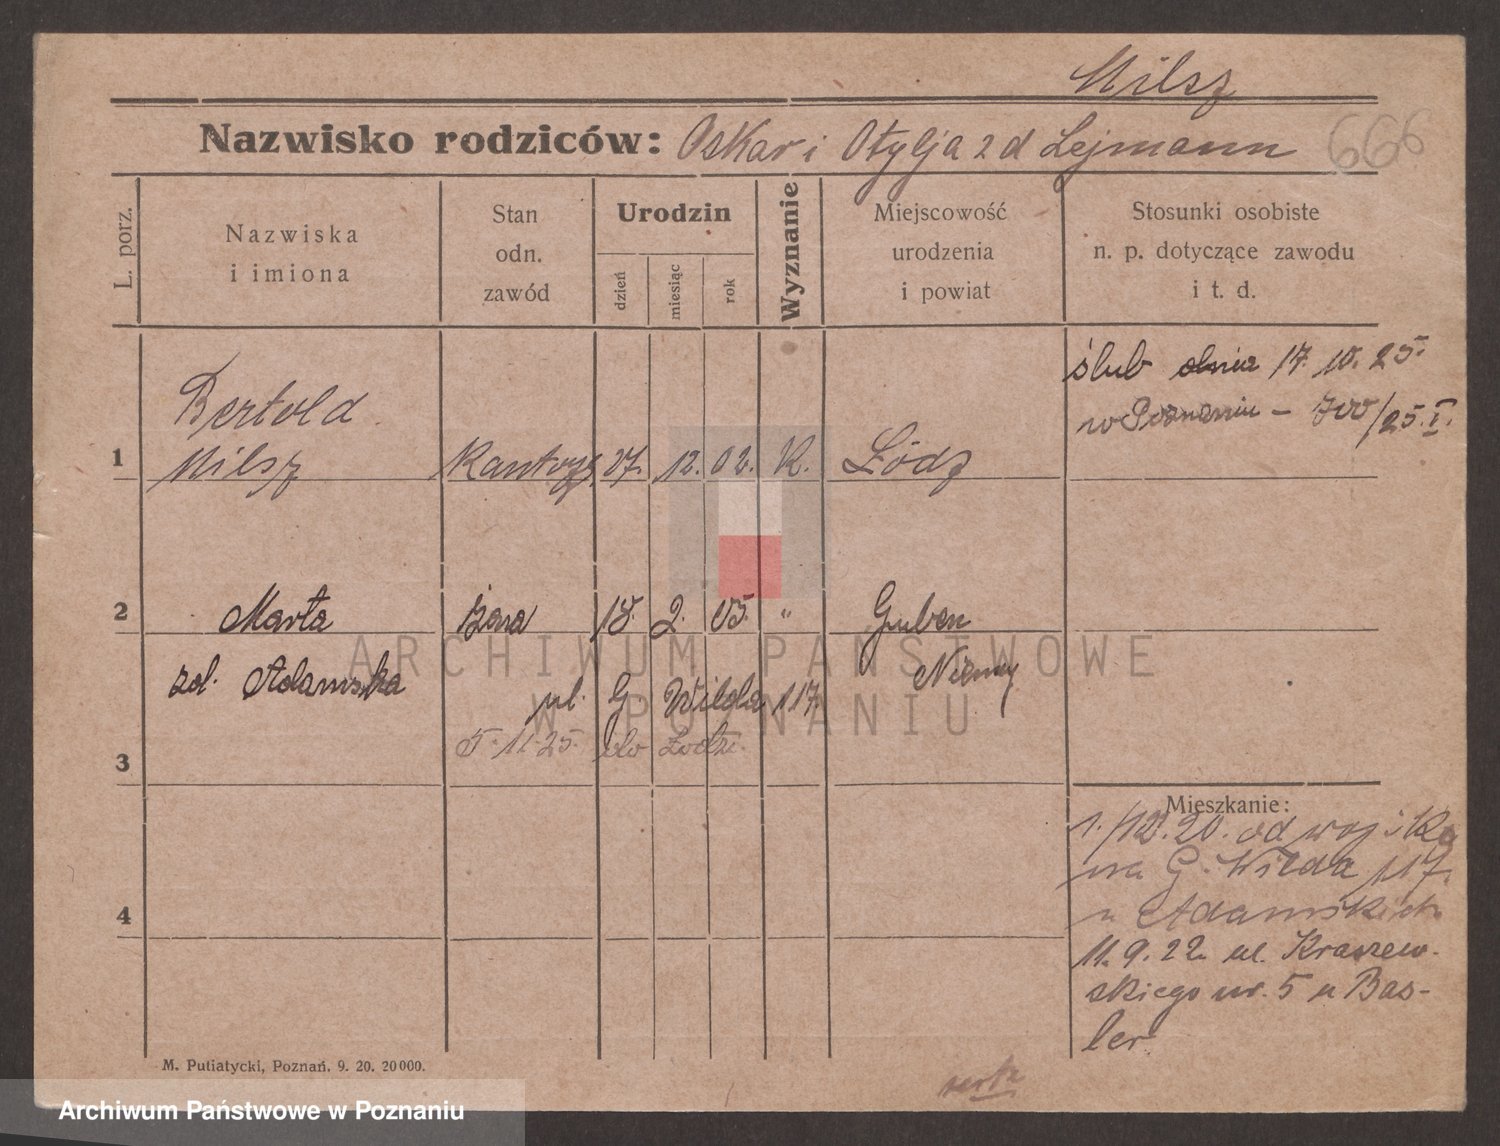 Milsz
Nazwisko rodziców: Oskar i Otylja z d Lejmann 666
L. porz.
Nazwiska
i imiona
Stan
odn.
zawód
Urodzin
dzień
miesiąc
rok
Wyznanie
Miejscowość
urodzenia
i powiat
Stosunki osobiste
n. p. dotyczące zawodu
i t. d.
ślub dnia 17. 10. 25.
w Poznaniu – 700/25.I.
Bertold
1 Milsz 12. 02. K. Łódz
2 Marta żona 18. 2. 05. " Guben
zol. Adamska Niemcy
ul. G. Wilda 117.
5. 11. 25. do Łodzi.
3
Mieszkanie:
1./12.20. od wojska
na G. Wilda 117.
u Adamskich
11. 9. 22. ul. Kraszew-
skiego nr. 5 u Bas-
ler
4
M. Putiatycki, Poznań. 9. 20. 20000.
ARCHIWUM PAŃSTWOWE
W POZNANIU
Archiwum Państwowe w Poznaniu